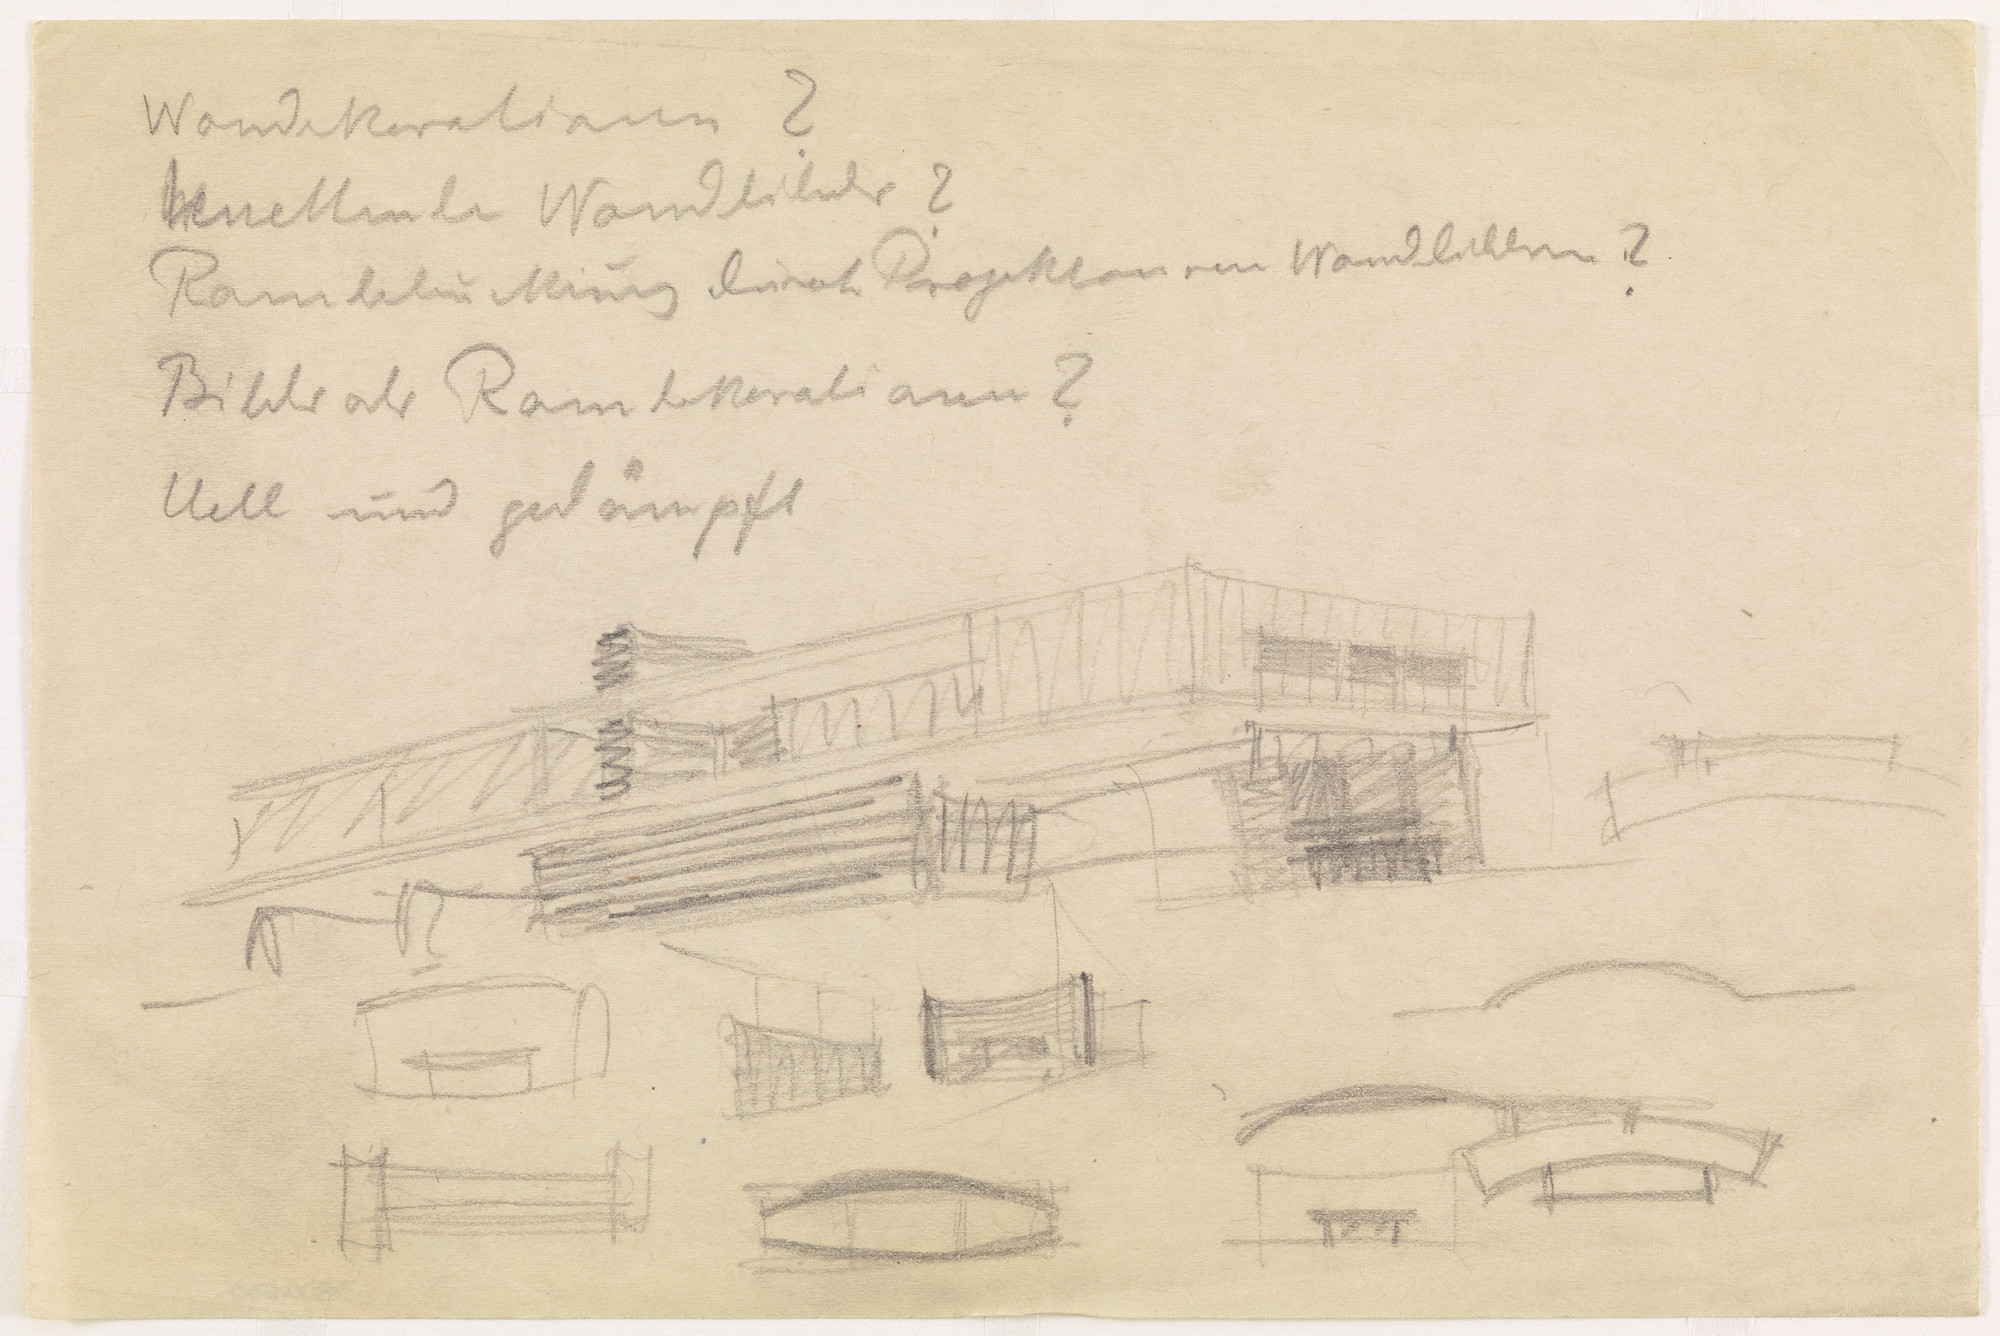 Wanddekorationen ?
Wandbilder ?
durch Projektion von Wandbildern ?
Bilder als Raumdekorationen ?
Hell und gedämpft